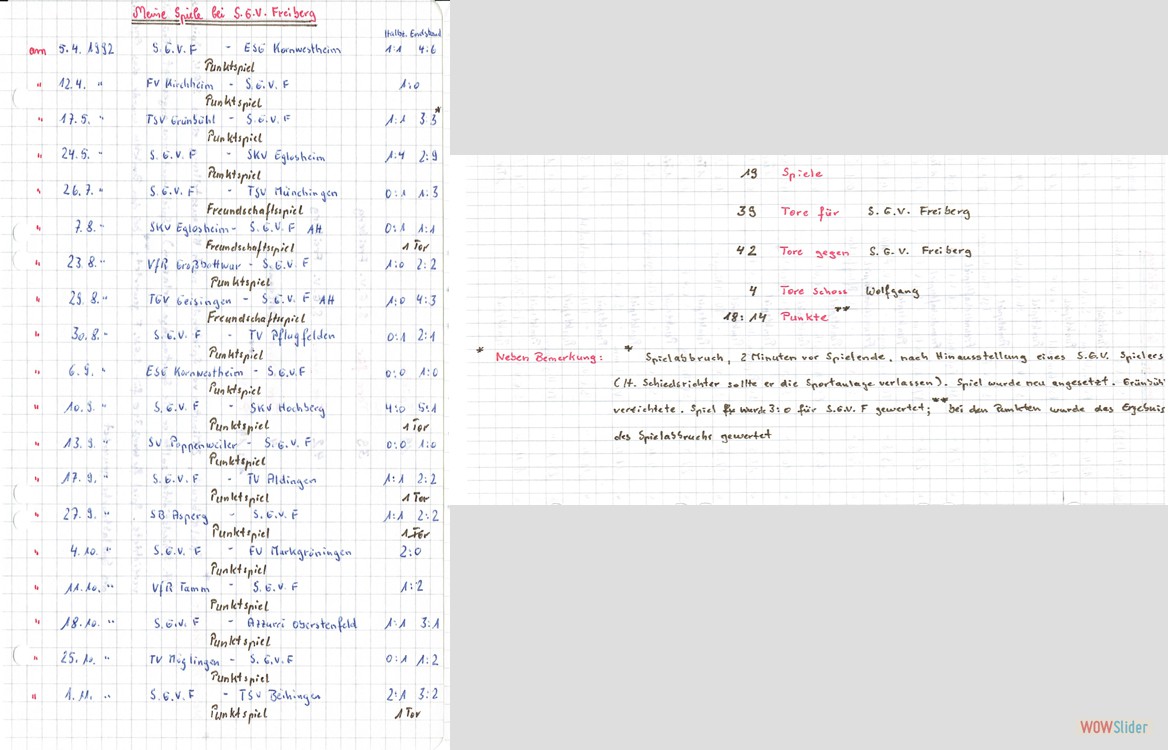 Meine Spiele bei S.G.V. Freiberg
Halbz. Endstand
am 5.4. 1992 S.G.V.F - ESG Kornwestheim 1:1 4:6
Punktspiel
" 12.4. " FV Kirchheim - S.G.V.F 1:0
Punktspiel
" 17.5. " TSV Grünbühl - S.G.V.F 1:1 3:3*
Punktspiel
" 24.5. " S.G.V.F - SKV Eglosheim 1:4 2:9
Punktspiel
" 26.7. " S.G.V.F - TSV Münchingen 0:1 1:3
Freundschaftsspiel
" 7.8. " SKV Eglosheim - S.G.V.F AH 0:1 1:1
Freundschaftsspiel 1 Tor
" 23.8. " VfR Großbottwar - S.G.V.F 1:0 2:2
Punktspiel
" 29.8. " TGV Geisingen - S.G.V.F AH 1:0 4:3
Freundschaftsspiel
" 30.8. " S.G.V.F - TV Pflugfelden 0:1 2:1
Punktspiel
" 6.9. " ESG Kornwestheim - S.G.V.F 0:0 1:0
Punktspiel
" 10.9. " S.G.V.F - SKV Hochberg 4:0 5:1
Punktspiel 1 Tor
" 13.9. " SV Poppenweiler - S.G.V.F 0:0 1:0
Punktspiel
" 17.9. " S.G.V.F - TV Aldingen 1:1 2:2
Punktspiel 1 Tor
" 27.9. " SB Asperg - S.G.V.F 1:1 2:2
Punktspiel 1 Tor
" 4.10. " S.G.V.F - FV Markgröningen 2:0
Punktspiel
" 11.10. " VfR Tamm - S.G.V.F 1:2
Punktspiel
" 18.10. " S.G.V.F - Azzurri Oberstenfeld 1:1 3:1
Punktspiel
" 25.10. " TV Möglingen - S.G.V.F 0:1 1:2
Punktspiel
" 1.11. " S.G.V.F - TSV Beihingen 2:1 3:2
Punktspiel 1 Tor
19 Spiele
39 Tore für S.G.V. Freiberg
42 Tore gegen S.G.V. Freiberg
4 Tore schoss Wolfgang
18:14 Punkte **
* Neben Bemerkung: * Spielabbruch, 2 Minuten vor Spielende, nach Hinausstellung eines S.G.V. Spielers
(lt. Schiedsrichter sollte er die Sportanlage verlassen). Spiel wurde neu angesetzt. Grünbühl
verzichtete. Spiel wurde 3:0 für S.G.V. F gewertet; ** bei den Punkten wurde das Ergebnis
des Spielabbruchs gewertet
WOWSlider